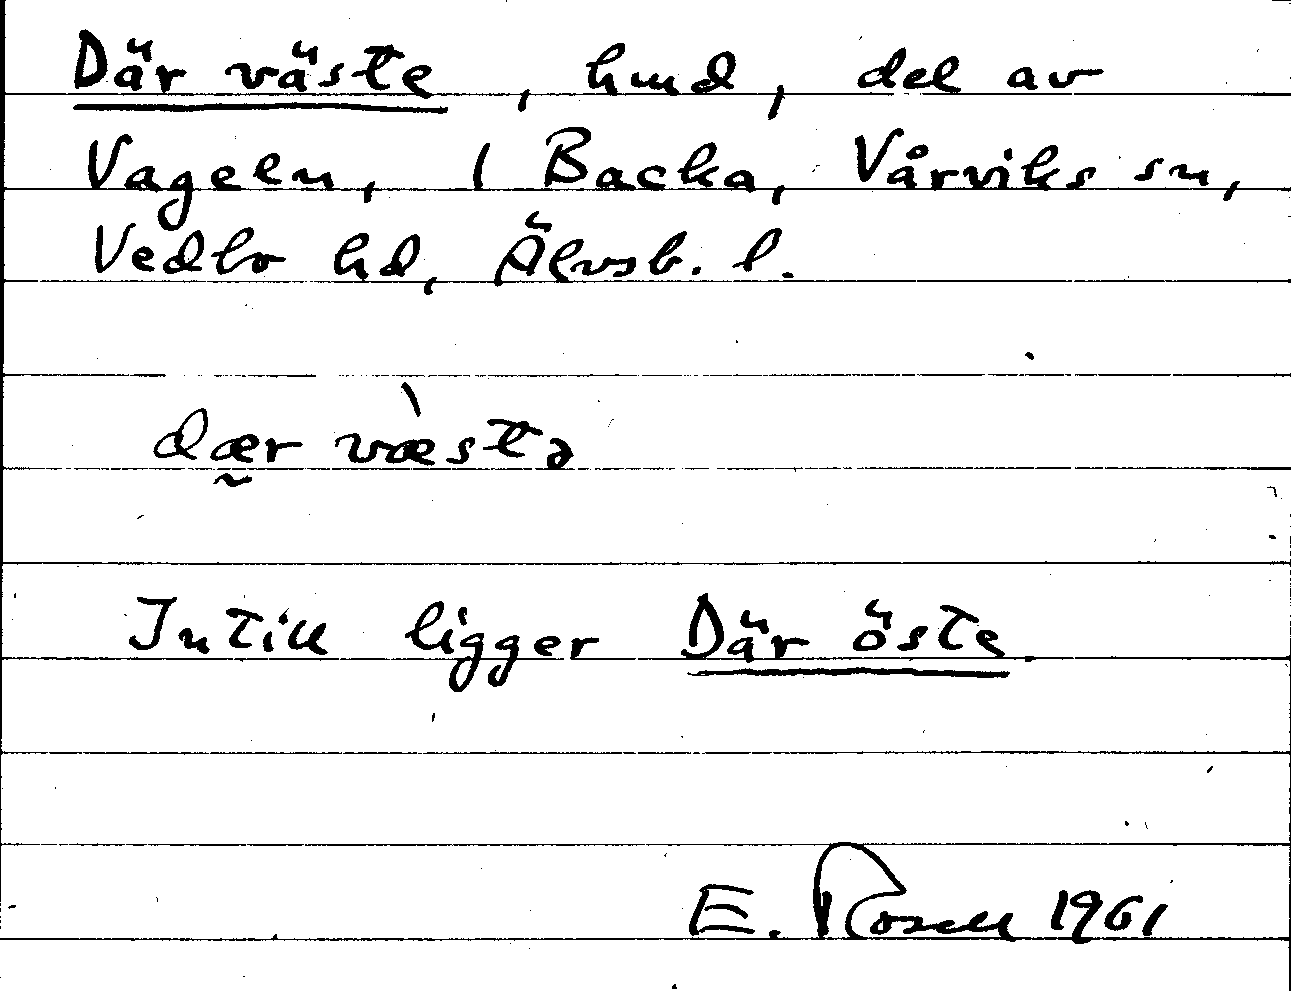 Där väste, hmd, del av
Vageln, 1 Backa, Vårviks sn,
Vedbo hd, Älvsb. l.
dær væ̀stə
Intill ligger Där öste.
E. Rosell 1961